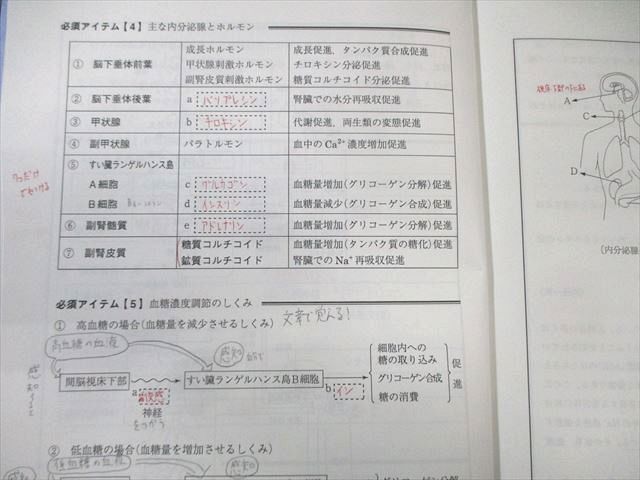 必須アイテム【4】主な内分泌腺とホルモン
① 脳下垂体前葉
成長ホルモン 成長促進，タンパク質合成促進
甲状腺刺激ホルモン チロキシン分泌促進
副腎皮質刺激ホルモン 糖質コルチコイド分泌促進
② 脳下垂体後葉 a バソプレシン 腎臓での水分再吸収促進
③ 甲状腺 b チロキシン 代謝促進，両生類の変態促進
④ 副甲状腺 パラトルモン 血中のCa²⁺濃度増加促進
⑤ すい臓ランゲルハンス島
A細胞 c グルカゴン 血糖量増加(グリコーゲン分解)促進
B細胞 d インスリン 血糖量減少(グリコーゲン合成)促進
⑥ 副腎髄質 e アドレナリン 血糖量増加(グリコーゲン分解)促進
⑦ 副腎皮質
糖質コルチコイド 血糖量増加(タンパク質の糖化)促進
鉱質コルチコイド 腎臓でのNa⁺再吸収促進
必須アイテム【5】血糖濃度調節のしくみ
① 高血糖の場合(血糖量を減少させるしくみ) 文章で覚える！
高血糖の血液
感知
間脳視床下部
a 副交感
神経
すい臓ランゲルハンス島B細胞
b イン
細胞内への
糖の取り込み
グリコーゲン合成
糖の消費
促進
② 低血糖の場合(血糖量を増加させるしくみ)
低血糖の血液
感知
グリコーゲン分解
A
C
D
[内分泌腺